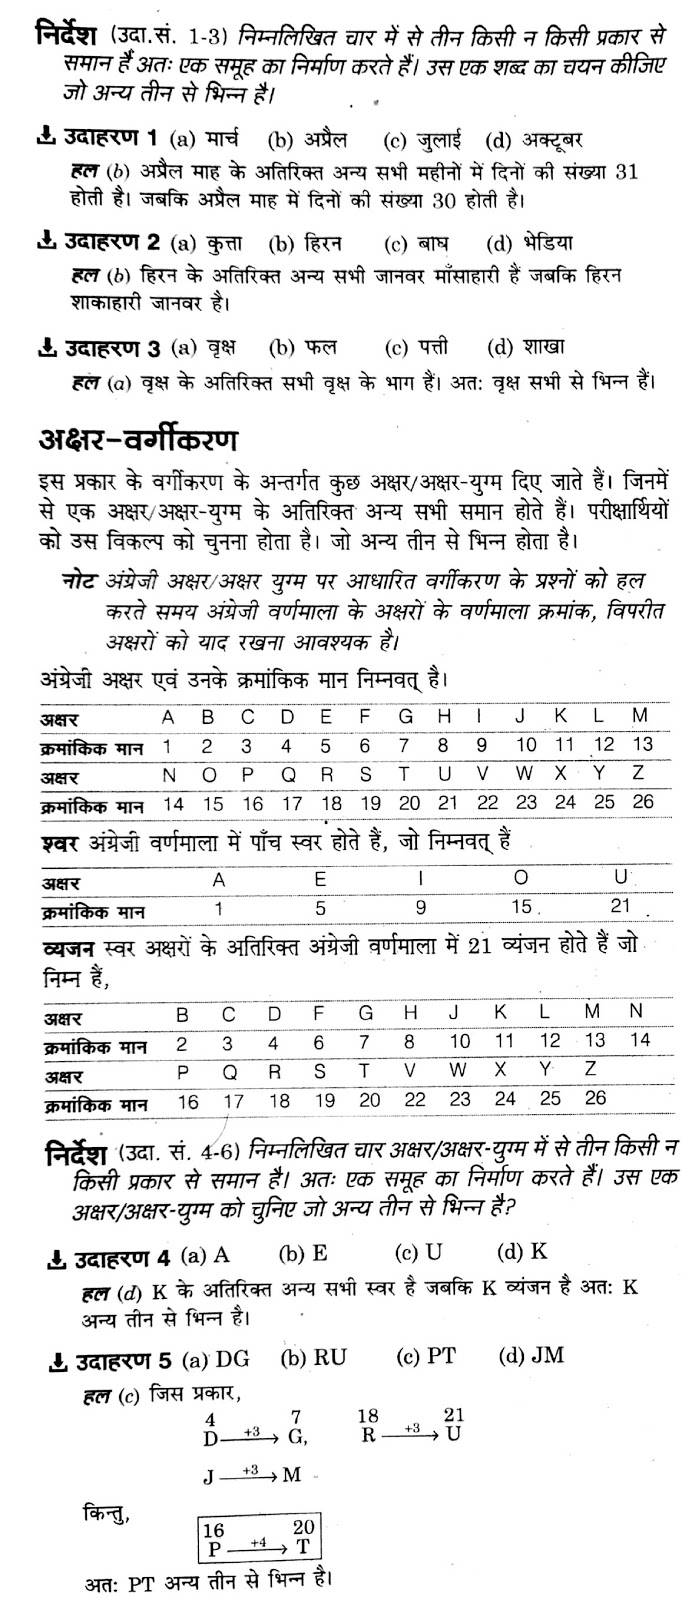 निर्देश (उदा.सं. 1-3) निम्नलिखित चार में से तीन किसी न किसी प्रकार से
समान हैं अतः एक समूह का निर्माण करते हैं। उस एक शब्द का चयन कीजिए
जो अन्य तीन से भिन्न है।
उदाहरण 1 (a) मार्च (b) अप्रैल (c) जुलाई (d) अक्टूबर
हल (b) अप्रैल माह के अतिरिक्त अन्य सभी महीनों में दिनों की संख्या 31
होती है। जबकि अप्रैल माह में दिनों की संख्या 30 होती है।
उदाहरण 2 (a) कुत्ता (b) हिरन (c) बाघ (d) भेडिया
हल (b) हिरन के अतिरिक्त अन्य सभी जानवर माँसाहारी हैं जबकि हिरन
शाकाहारी जानवर है।
उदाहरण 3 (a) वृक्ष (b) फल (c) पत्ती (d) शाखा
हल (a) वृक्ष के अतिरिक्त सभी वृक्ष के भाग हैं। अत: वृक्ष सभी से भिन्न हैं।
अक्षर-वर्गीकरण
इस प्रकार के वर्गीकरण के अन्तर्गत कुछ अक्षर/अक्षर-युग्म दिए जाते हैं। जिनमें
से एक अक्षर/अक्षर-युग्म के अतिरिक्त अन्य सभी समान होते हैं। परीक्षार्थियों
को उस विकल्प को चुनना होता है। जो अन्य तीन से भिन्न होता है।
नोट अंग्रेजी अक्षर/अक्षर युग्म पर आधारित वर्गीकरण के प्रश्नों को हल
करते समय अंग्रेजी वर्णमाला के अक्षरों के वर्णमाला क्रमांक, विपरीत
अक्षरों को याद रखना आवश्यक है।
अंग्रेजी अक्षर एवं उनके क्रमांकिक मान निम्नवत् है।
अक्षर A B C D E F G H I J K L M
क्रमांकिक मान 1 2 3 4 5 6 7 8 9 10 11 12 13
अक्षर N O P Q R S T U V W X Y Z
क्रमांकिक मान 14 15 16 17 18 19 20 21 22 23 24 25 26
श्वर अंग्रेजी वर्णमाला में पाँच स्वर होते हैं, जो निम्नवत् हैं
अक्षर A E I O U
क्रमांकिक मान 1 5 9 15 21
व्यजन स्वर अक्षरों के अतिरिक्त अंग्रेजी वर्णमाला में 21 व्यंजन होते हैं जो
निम्न हैं,
अक्षर B C D F G H J K L M N
क्रमांकिक मान 2 3 4 6 7 8 10 11 12 13 14
अक्षर P Q R S T V W X Y Z
क्रमांकिक मान 16 17 18 19 20 22 23 24 25 26
निर्देश (उदा. सं. 4-6) निम्नलिखित चार अक्षर/अक्षर-युग्म में से तीन किसी न
किसी प्रकार से समान है। अतः एक समूह का निर्माण करते हैं। उस एक
अक्षर/अक्षर-युग्म को चुनिए जो अन्य तीन से भिन्न है?
उदाहरण 4 (a) A (b) E (c) U (d) K
हल (d) K के अतिरिक्त अन्य सभी स्वर है जबकि K व्यंजन है अत: K
अन्य तीन से भिन्न है।
उदाहरण 5 (a) DG (b) RU (c) PT (d) JM
हल (c) जिस प्रकार,
4 7 18 21
D +3→ G, R +3→ U
J +3→ M
किन्तु,
16 20
P +4→ T
अत: PT अन्य तीन से भिन्न है।